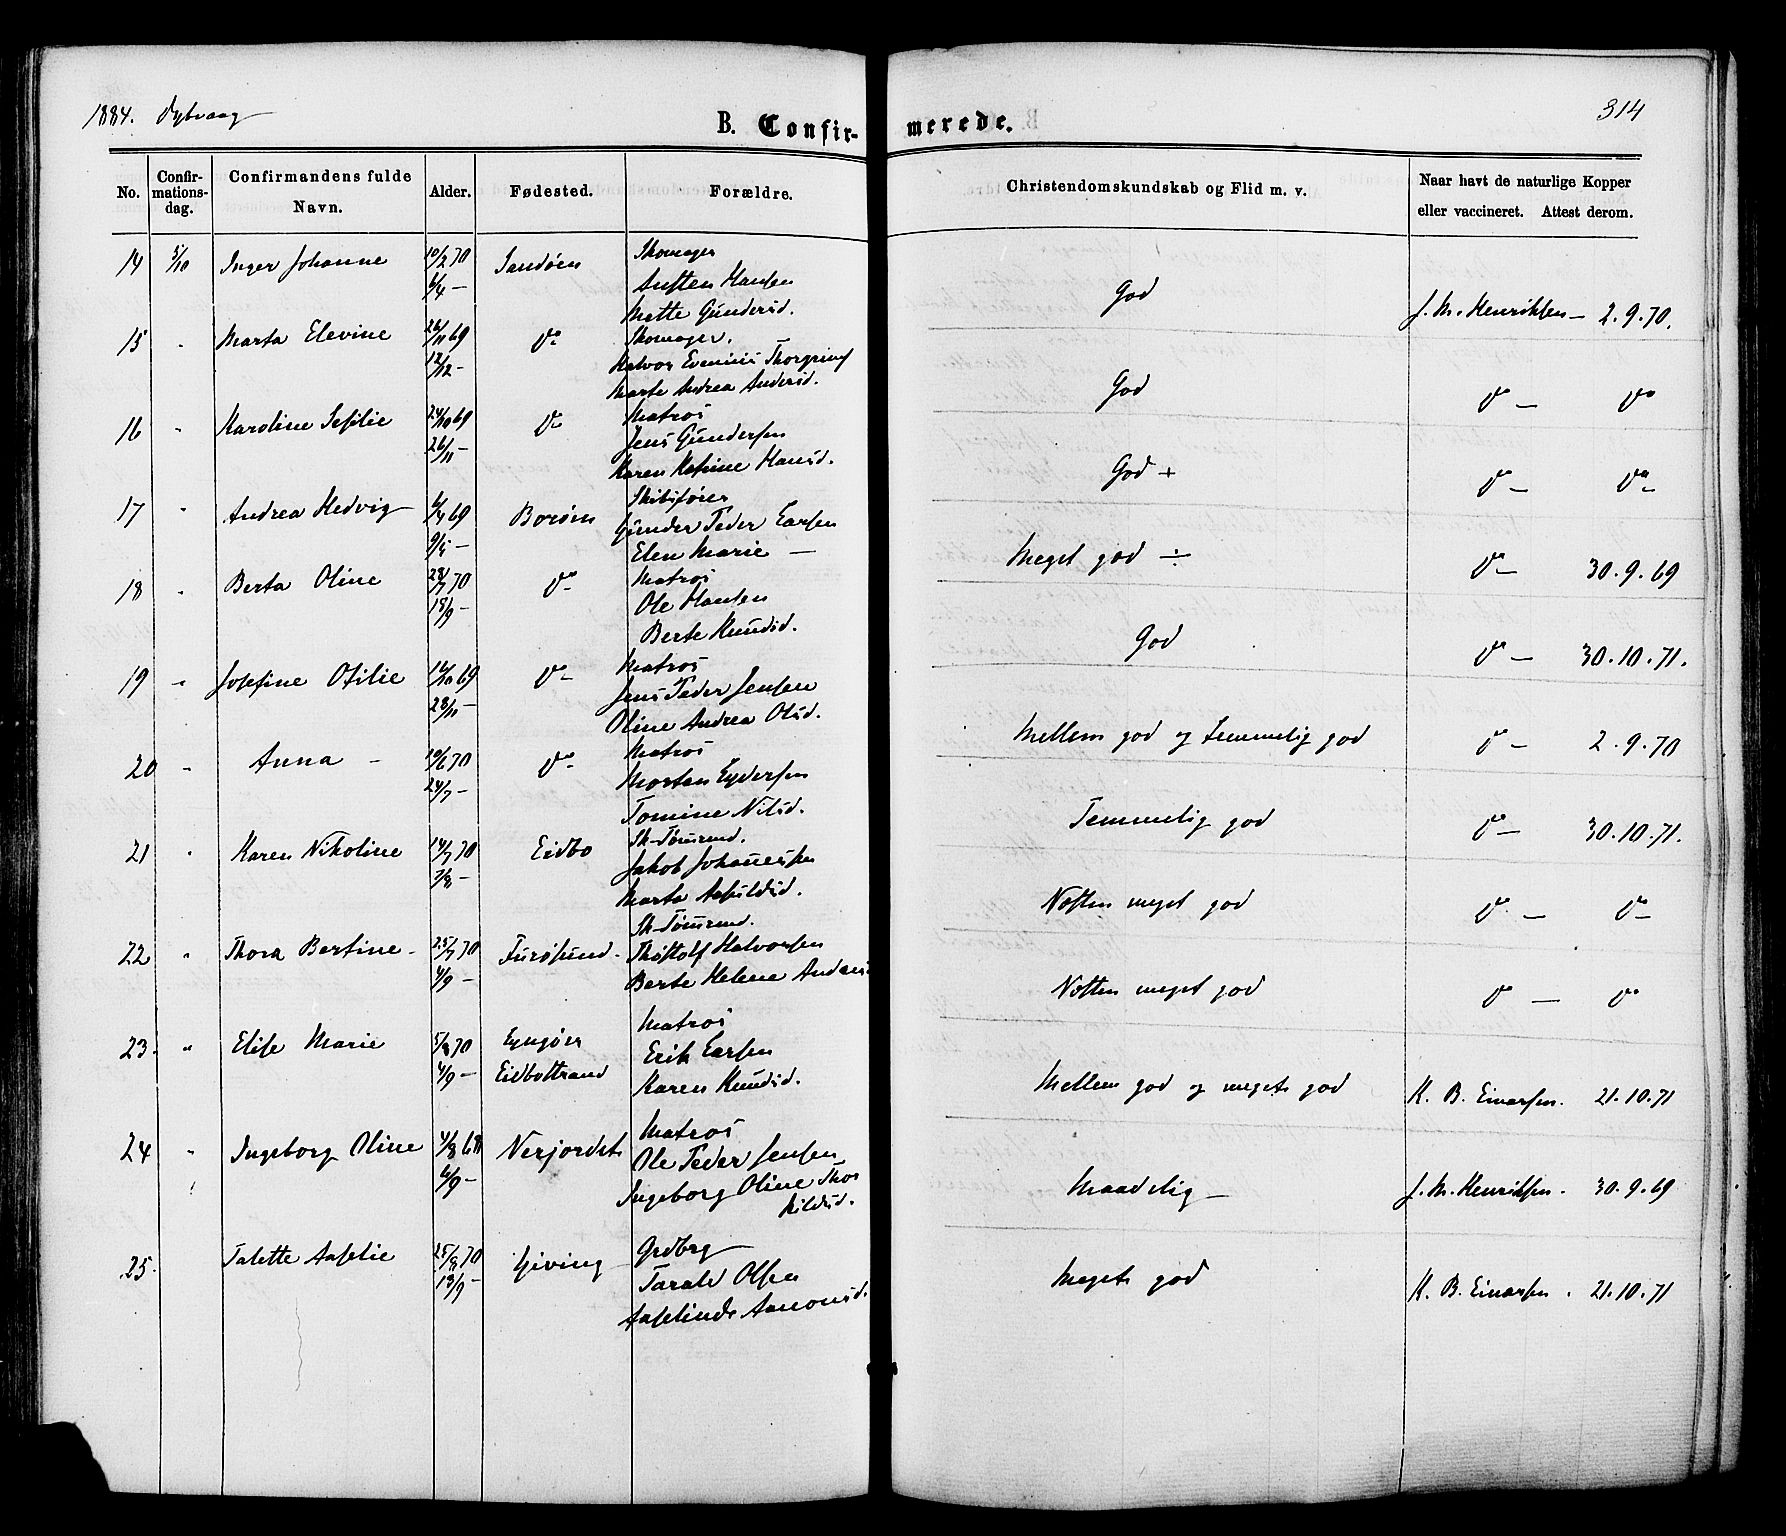 1884. Dybvaag
B. Confir-
merede.
314
No.
Confir-
mations-
dag.
Confirmandens fulde
Navn.
Alder.
Fødested.
Forældre.
Christendomskundskab og Flid m. v.
Naar havt de naturlige Kopper
eller vaccineret. Attest derom.
14 5/10 Inger Johanne 10/2 70 Sandøen Skomager
6/4 — Austen Hansen
Mette Gundersd.
God J. M. Henriksen — 2.9.70.
15 " Marta Elevine 26/11 69 Do Skomager.
12/12 — Halvor Evenius
Marte Andrea Andersd.
God Do — Do
16 " Karoline Sefilie 24/10 69 Do Matros
26/11 — Jens Gundersen
Karen Katrine Hansd.
God + Do — Do —
17 " Andrea Hedvig 4/4 69 Borøen Skibsfører
9/5 — Gunder Peder Larsen
Elen Marie —
Meget god ÷ Do — 30.9.69
18 " Berta Oline 28/7 70 Do Matros
18/9 — Ole Hansen
Berte Knudsd.
God Do — 30.10.71.
19 " Josefine Otilie 16/10 69 Do Matros
28/11 — Jens Peder Jensen
Oline Andrea Olsd.
Mellem god og temmelig god Do — 2.9.70
20 " Anna — 10/6 70 Do Matros
24/7 — Morten Lydersen
Tomine Nilsd.
Temmelig god Do — 30.10.71.
21 " Karen Nikoline 14/7 70 Eidbo Sk-Tømmd.
7/8 — Jakob Johannessen
Marta Asfuldsd.
Næsten meget god Do — Do —
22 " Thora Bertine — 25/7 70 Furøsund — Sk-Tømmd.
4/9 — Thostolf Halvorsen
Berte Helene Anders
Næsten meget god Do — Do
23. " Elise Marie 5/8 70 Lyngør Matros
4/9 — Eidbostrand Erik Larsen
Karen Knudsd.
Mellem god og meget god K. B. Einarsen. 21.10.71
24 " Ingeborg Oline 4/8 68 Nerjordet Matros
6/9 — Ole Peder Jensen
Ingeborg Oline Thor
kildsd.
Maadelig — J. M. Henriksen. 30.9.69
25. Talette Aaselie 25/8 70 Giving Grdbrg
18/9 — Tarald Olsen
Aaselinde Aanonsd.
Meget god K. B. Einarsen. 21.10.71